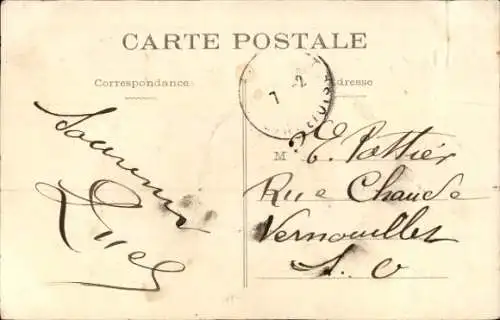 CARTE POSTALE
Correspondance
Adresse
7 -2
M E. Pottier
Rue Chaude
Vernouillet
S. O